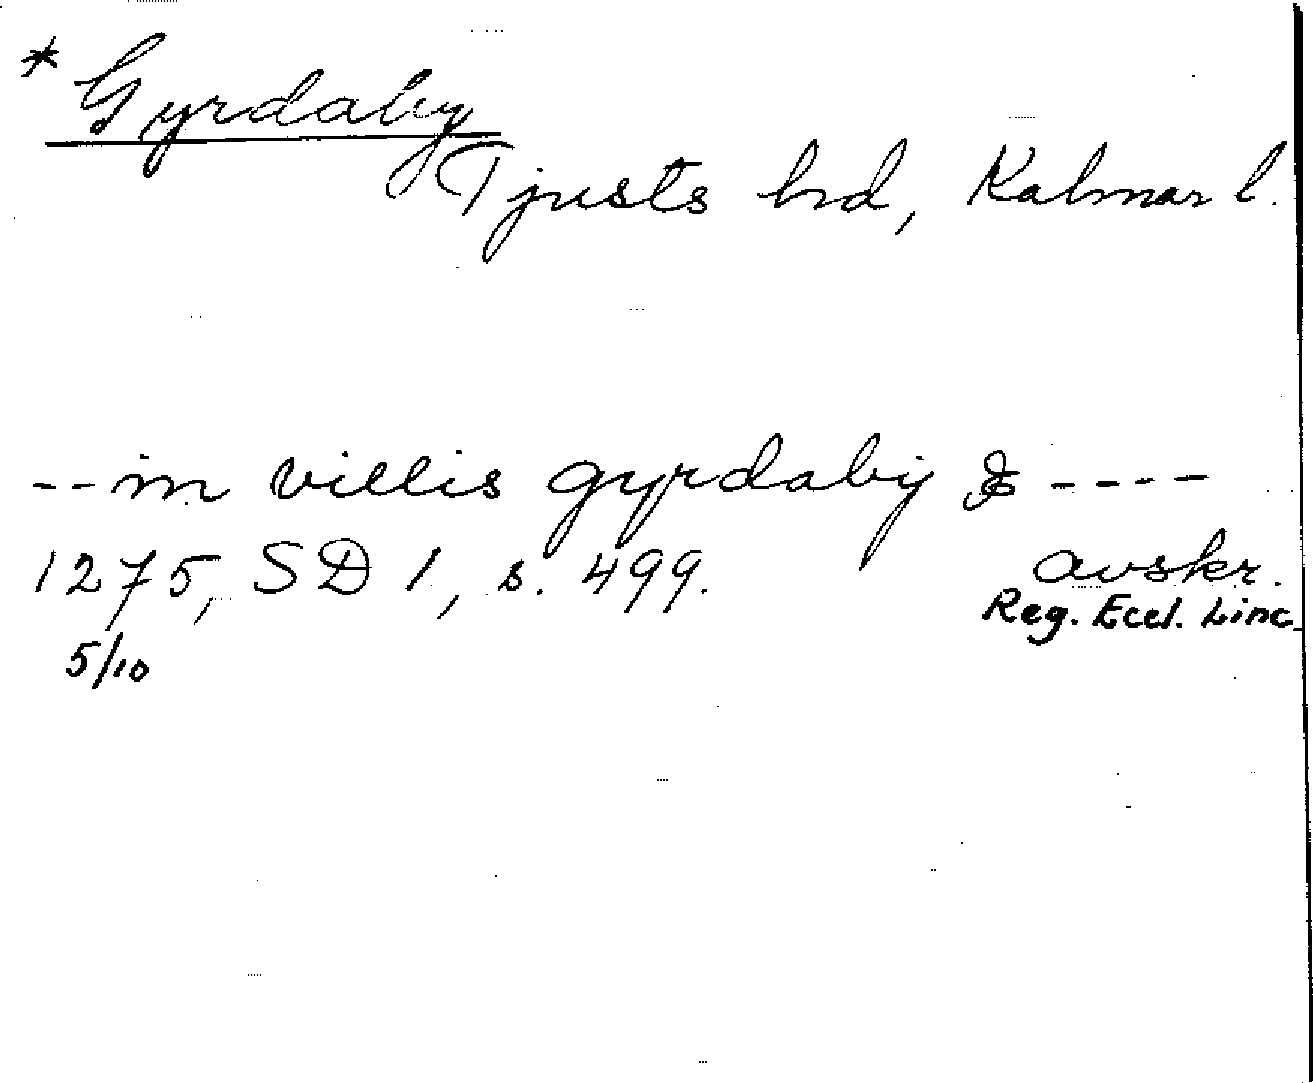 * Gyrdaby
Tjusts hd, Kalmar l.
-- in villis gyrdabij & ----
1275, SD 1, s. 499. avskr.
Reg. Eccl. Linc.
5/10